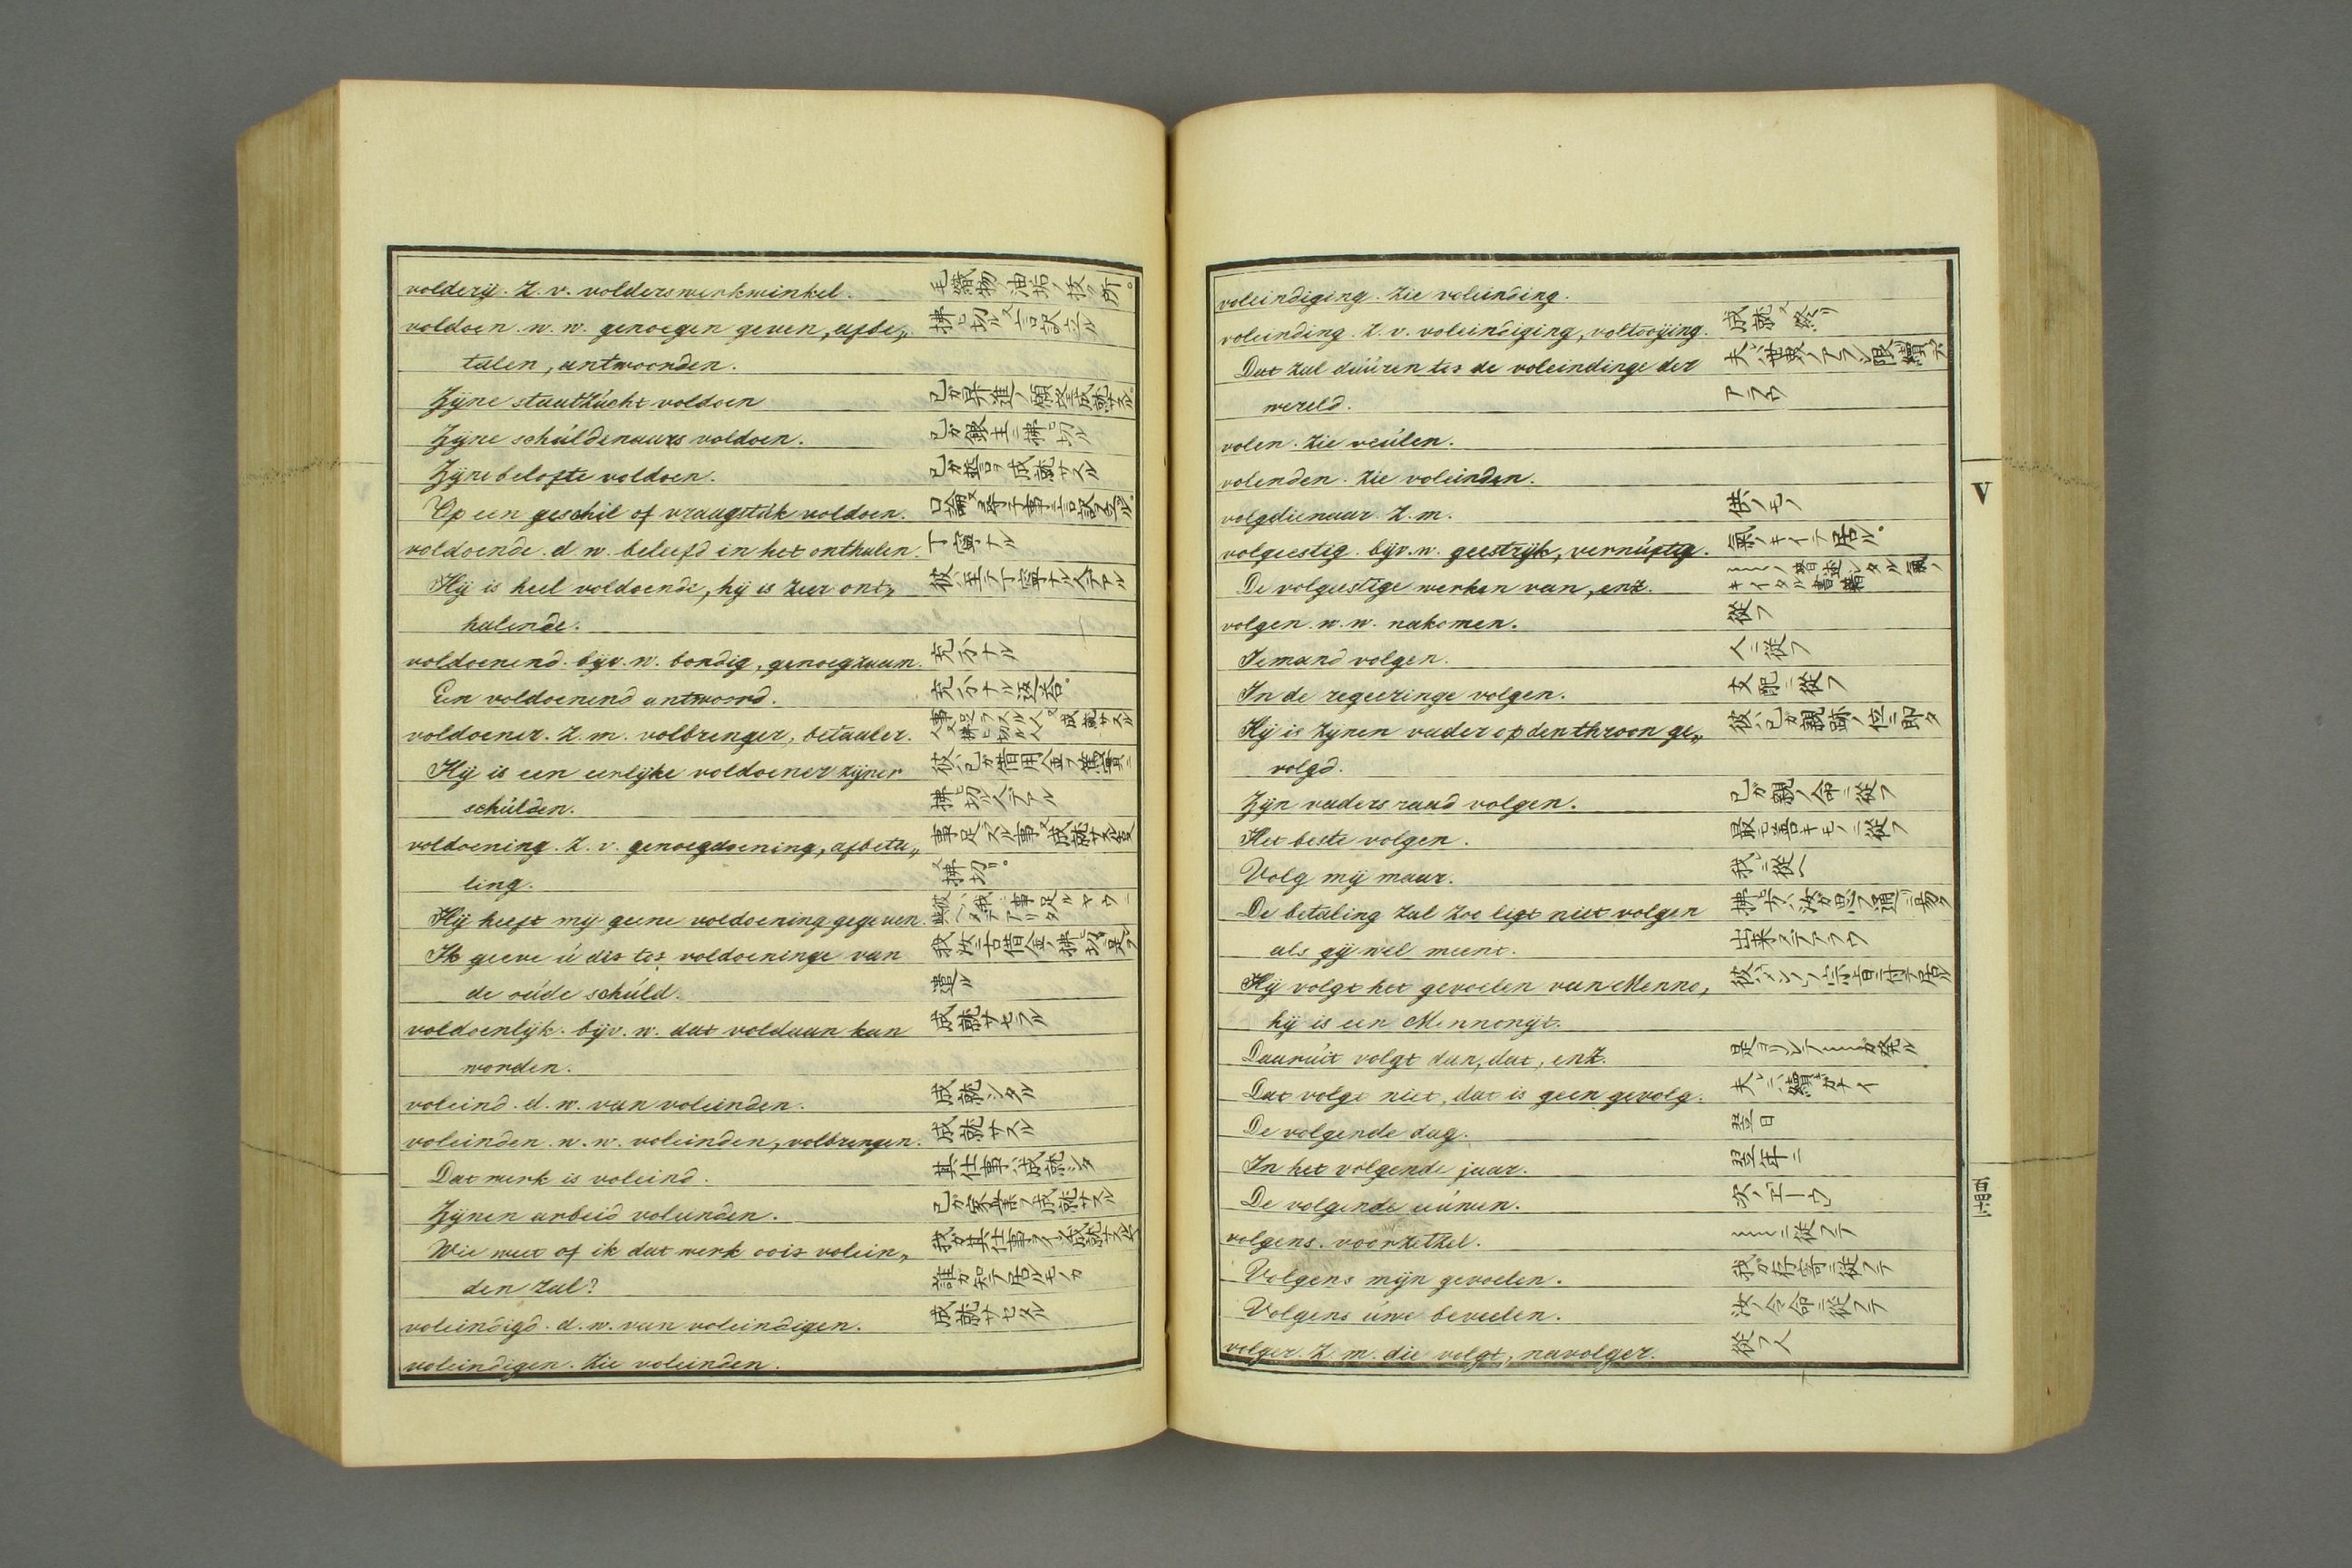 volderij. Z. v. volderswerkwinkel. 毛織物ノ油垢ノ抜ク所。
voldoen. w. w. genoegen geven, afbe„ 拂ヒ切ル又言訳立ル
talen, antwoorden.
Zijne staatzúcht voldoen 己ガ昇進ノ願望成就サスル。
Zijne schúldenaars voldoen. 己ガ銀主ニ拂ヒ切ル
Zijne belofte voldoen. 己ガ誓言ヲ成就サスル
Op een geschil of vraagstúk voldoen. 口論又
voldoende. d. w. beleefd in het onthalen. 丁寧ナル
Hij is heel voldoende, hij is zeer ont„ 彼ハ至テ丁寧ナル人デアル
halende.
voldoenend. bijv. w. bondig, genoegzaam. 充分ナル
Een voldoenend antwoord. 充分ナル返答。
voldoener. Z. m. volbrenger, betaaler. 事足ラスル人又成就サスル人又拂ヒ切ル人
Hij is een eerlijke voldoener zijner 彼ハ己ガ借用金ヲ篤實ニ
schúlden. 拂ヒ切ル人デアル
voldoening. Z. v. genoegdoening, afbeta„ 事足ラスル事又成就サスル事
ling. 又拂切リ。
Hij heeft mij geene voldoening gegeven. 彼ハ我ニ事足ルヤウニ
Ik geeve ú dis tot voldoeninge van 我汝ニ古借金ノ拂切ニ是ヲ
de oúde schúld. 遣ル
voldoenlijk. bijv. w. dat voldaan kan 成就サセラル
worden.
voleind. d. w. van voleinden. 成就シタル
voleinden. w. w. voleinden, volbrengen. 成就サスル
Dat werk is voleind. 其仕事ハ成就シタ
Zijnen arbeid voleinden. 己ガ家業ヲ成就サスル
Wie weet of ik dat werk ooit volein„ 我ガ其仕事ヲ
den zal? 誰ガ知テ居ルモノカ
voleindigd. d. w. van voleindigen. 成就サセタル
voleindigen. Zie voleinden.
voleindiging. Zie voleinding.
voleinding. Z. v. voleindiging, voltooijing. 成就又終リ
Dat zal dúúren tot de voleindinge der 夫レハ世界ノアラン限リ續ヒテ
wereld. アラウ
volen. Zie veúlen.
volenden. Zie voleinden.
volgdienaar. Z. m. 供ノモノ
volgeestig. bijv. w. geestrijk, vernúftig. 氣ノキイテ居ル。
De volgeestige werken van, enz. 〻〻ノ著述シタル氣ノキイタル書籍
volgen. w. w. nakomen. 從フ
Iemand volgen. 人ニ從フ
In de regeeringe volgen. 支配ニ從フ
Hij is zijnen vader op den throon ge„ 彼ハ己ガ親ノ跡ノ位ニ即タ
volgd.
Zijn vaders raad volgen. 己ガ親ノ命ニ從フ
Het beste volgen. 最モ善キモノニ從フ
Volg mij maar. 我ニ從ヘ
De betaling zal zoo ligt niet volgen 拂ヒ方ハ汝ガ思フ通リニ易ク
als gij wel meent. 出來ヌデアラウ
Hij volgt het gevoelen van Menno, 彼ハメンノノ宗旨ニ付テ居ル
hij is een Mennonijt.
Daarúit volgt dan, dat, enz. 是ヨリシテ〻〻ガ発ル
Dat volgt niet, dat is geen gevolg. 夫レハ續カナイ
De volgende dag. 翌日
In het volgende jaar. 翌年ニ
De volgende eeúwen. 次ノ「エーウ」
volgens. voorzetzel. 〻〻ニ從フテ
Volgens mijn gevoelen. 我ガ存寄ニ從フテ
Volgens úwe beveelen. 汝ノ令命ニ從フテ
volger. Z. m. die volgt, navolger. 從フ人
V
百四十二